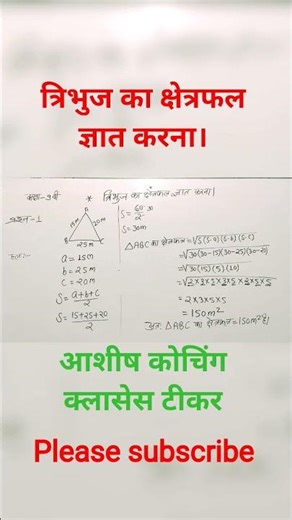 त्रिभुज का क्षेत्रफल
ज्ञात करना।
कक्षा-9वी
* त्रिभुज का क्षेत्रफल ज्ञात करना।
प्रश्न-1
A
15m
20m
B
C
25m
हल:-
a = 15m
b = 25m
c = 20m
S = a+b+c/2
S = 15+25+20/2
S = 60/2 30
S = 30m
△ABC का क्षेत्रफल = √S(S-a)(S-b)(S-c)
= √30(30-15)(30-25)(30-20)
= √30(15)(5)(10)
= √2×3×5×3×5×5×2×5
= 2×3×5×5
= 150m²
अतः △ABC का क्षेत्रफल = 150m² है।
आशीष कोचिंग
क्लासेस टीकर
Please subscribe